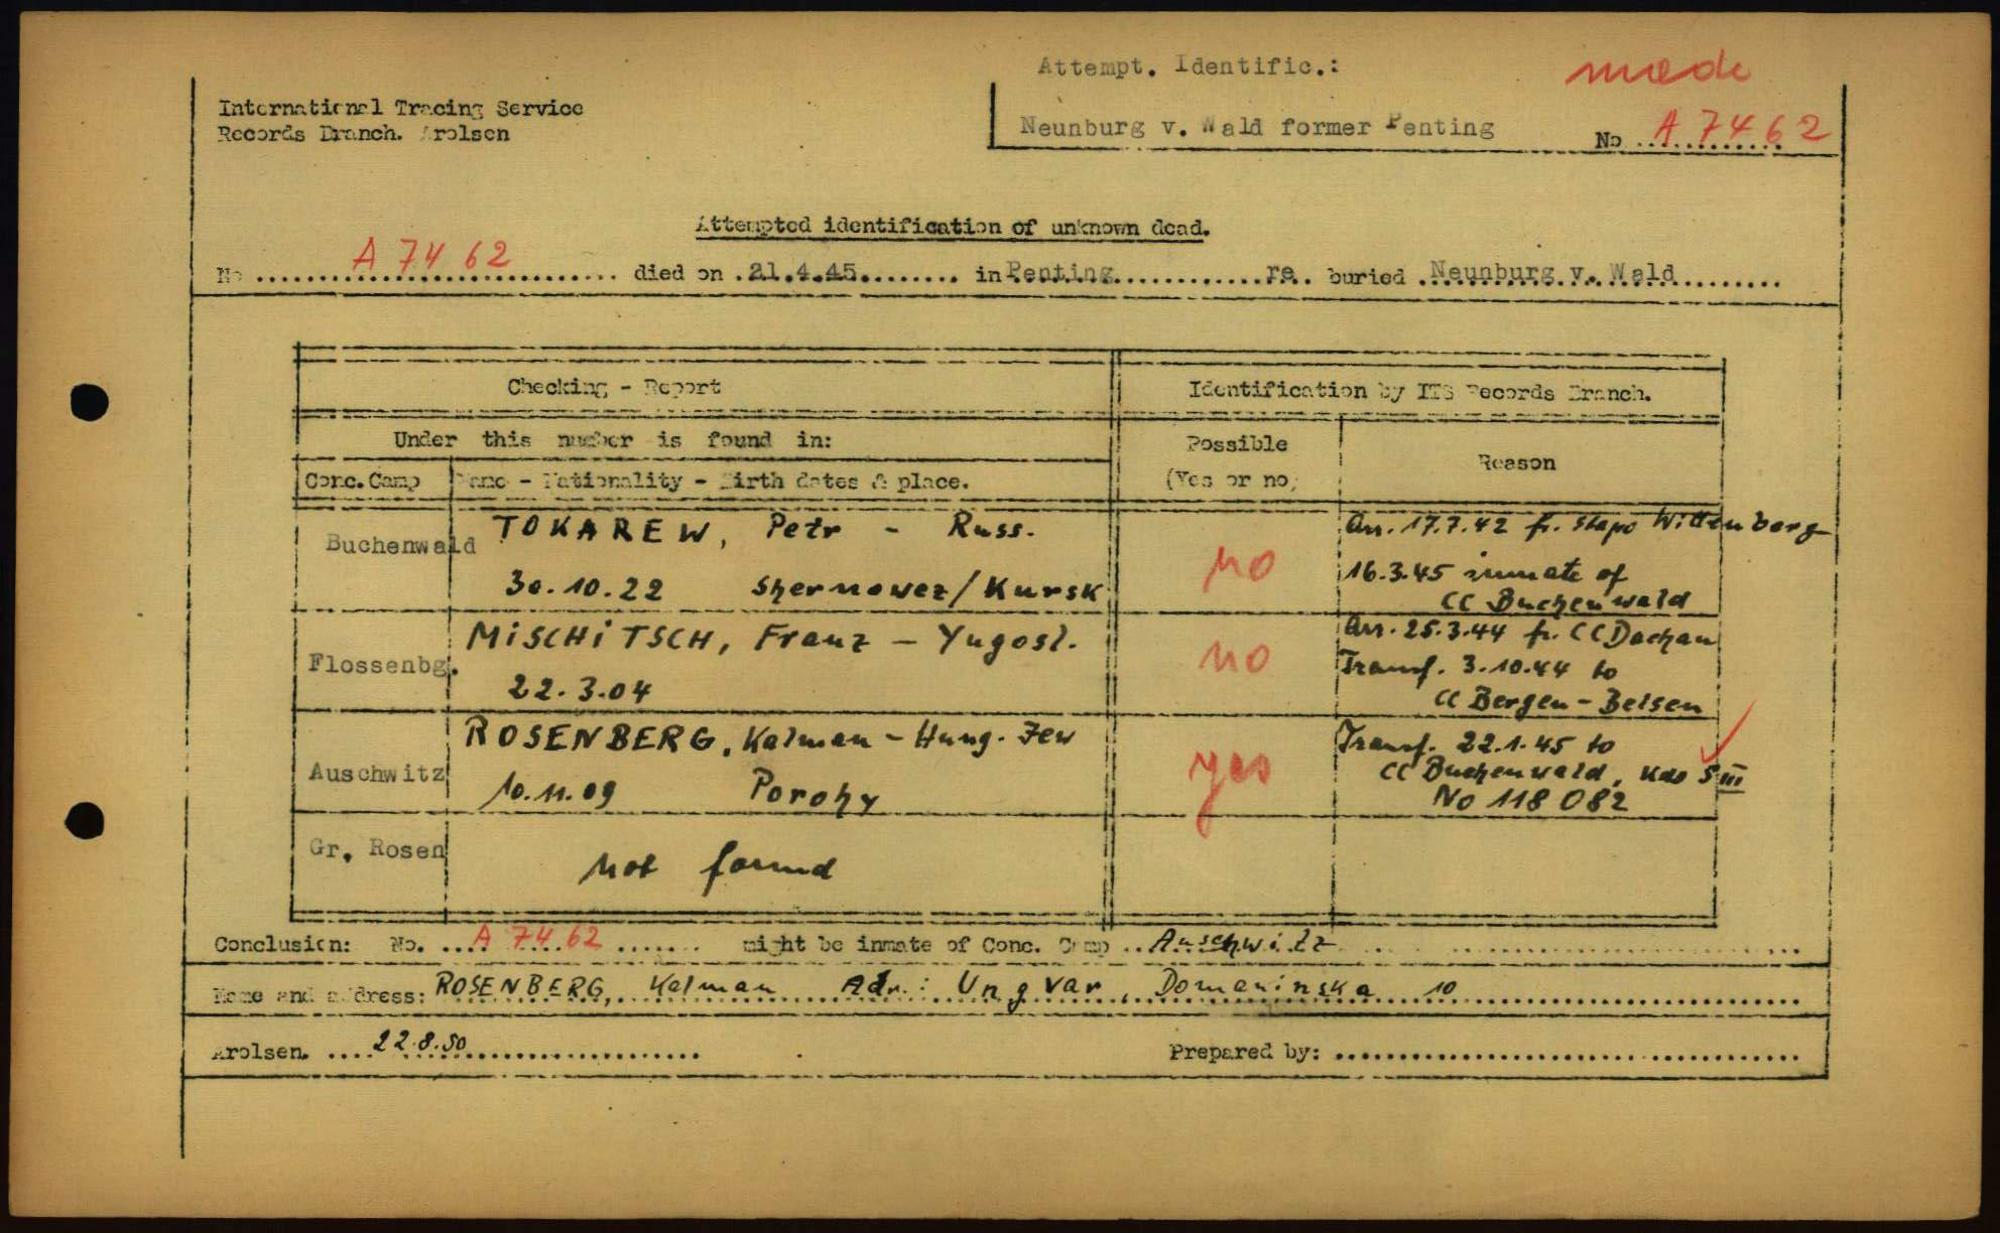 Attempt. Identific.: made
International Tracing Service
Records Branch. Arolsen
Neunburg v. Wald former Penting No A 7462
Attempted identification of unknown dead.
No A 7462 died on 21.4.45 in Penting re buried Neunburg v. Wald
Checking - Report Identification by ITS Records Branch.
Under this number is found in: Possible (Yes or no) Reason
Conc. Camp Name - Nationality - Birth dates & place.
Buchenwald TOKAREW, Petr - Russ. no Arr. 17.7.42 fr. Stapo Wittenberg
30.10.22 Shernowez/Kursk 16.3.45 inmate of
CC Buchenwald
Flossenbg. MiSCHiTSCH, Franz - Yugosl. no Arr. 25.3.44 fr. CC Dachau
22.3.04 Transf. 3.10.44 to
CC Bergen-Belsen
Auschwitz ROSENBERG, Kalman - Hung. Jew yes Transf. 22.1.45 to
10.11.09 Porohy CC Buchenwald, Kdo S III
No 118 082
Gr. Rosen not found
Conclusion: No. A 7462 might be inmate of Conc. Camp Auschwitz
Name and address: ROSENBERG, Kalman Adr.: Ungvar, Domaninska 10
Arolsen. 22.8.50 Prepared by: